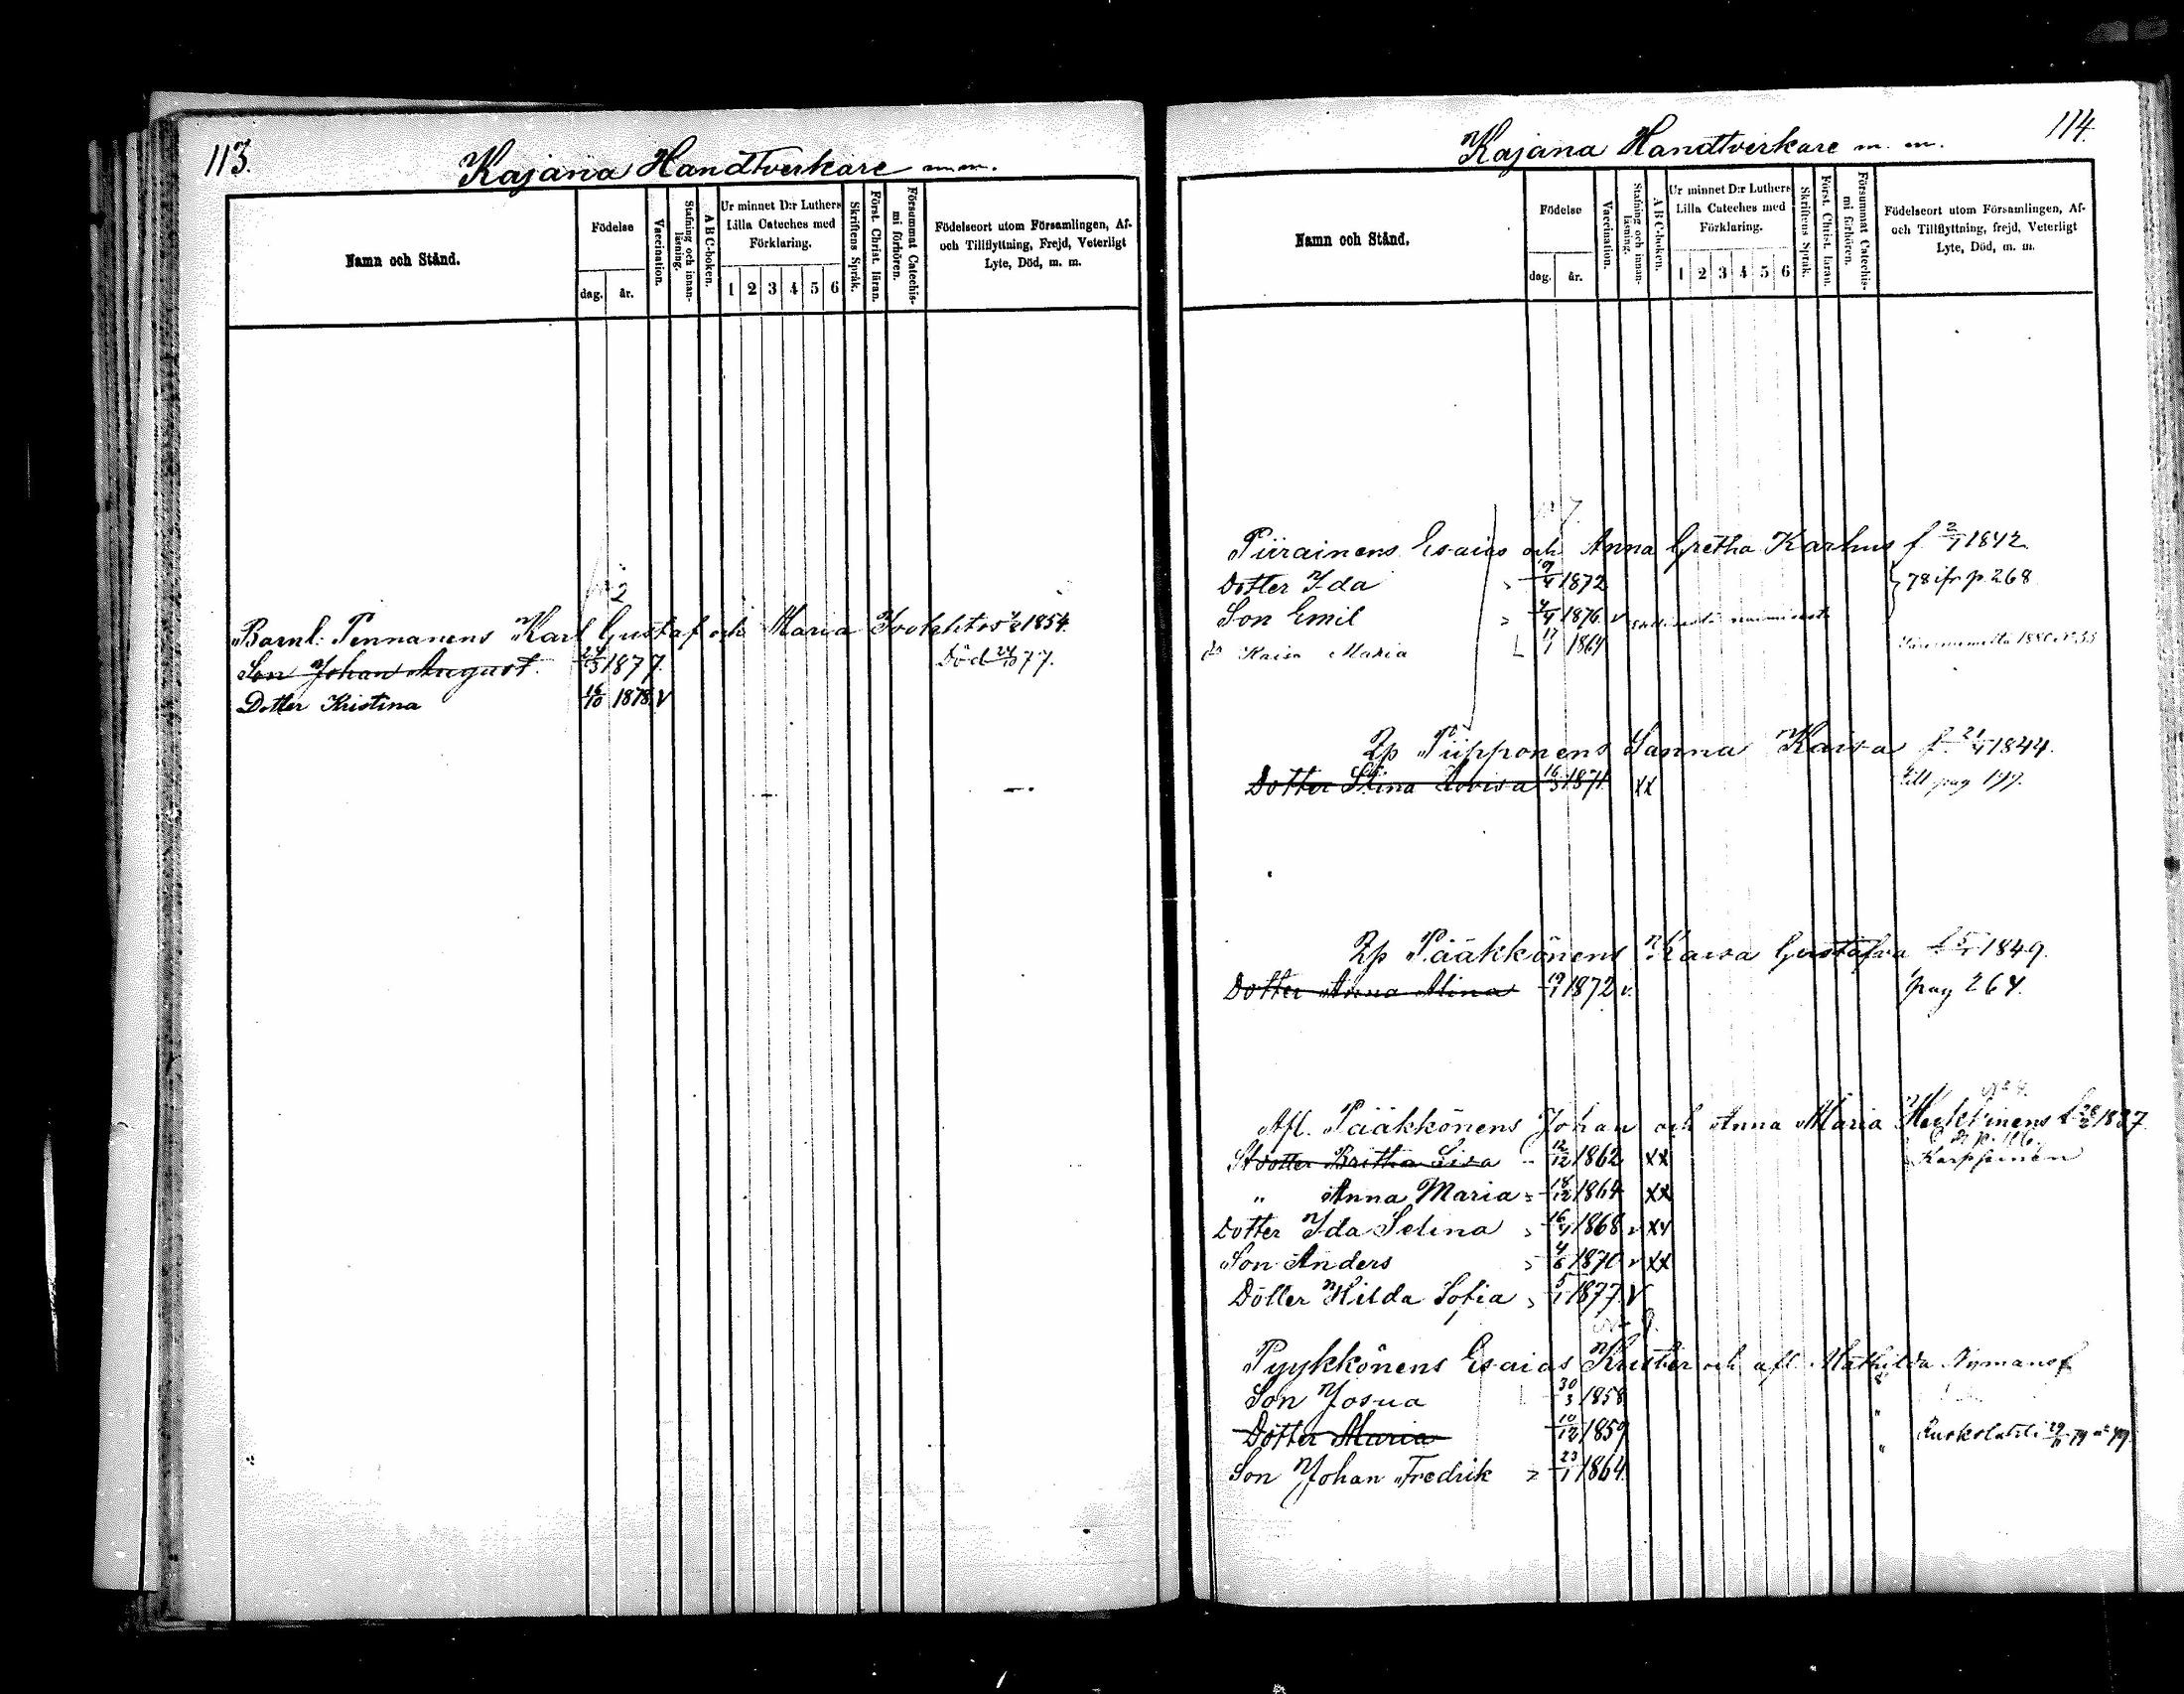 113.
Kajana Handtverkare m.m.
Namn och Stånd.
Födelse
dag. år.
Vaccination.
Stafning och innanläsning.
ABC-boken.
Ur minnet D:r Luthers Lilla Cateches med Förklaring.
1 2 3 4 5 6
Skriftens Språk.
Först. Christ. läran.
Försummat Catechismi förhören.
Födelseort utom Församlingen, Af- och Tillflyttning, Frejd, Veterligt Lyte, Död, m. m.
2
Barnl. Pennanens Karl Gustaf och Maria 1854.
Son Johan August. 1877. Död 24/10 77.
Dotter Kristina 16/10 1878 v
114.
Kajana Handtverkare m. m.
Namn och Stånd.
Födelse
dag. år.
Vaccination.
Stafning och innanläsning.
ABC-boken.
Ur minnet D:r Luthers Lilla Cateches med Förklaring.
1 2 3 4 5 6
Skriftens Språk.
Först. Christ. läran.
Försummat Catechismi förhören.
Födelseort utom Församlingen, Af- och Tillflyttning, frejd, Veterligt Lyte, Död, m. m.
Piirainens Esaias och Anna Gretha Karhus f 2/7 1842
Dotter Ida 1872 78 ifr p. 268
Son Emil 1876 v
Kaisa Maria 1864 1880 No 33
Zp Piipponens Sanna Kaisa f 21/4 1844.
Dotter Stina Lovisa 16/3 1871 XX till pag 199.
Zp Pääkkönens Kaisa Gustafva 1849.
Dotter Anna Alina 19/1 1872 v. pag 264.
Afl. Pääkkönens Johan och Anna Maria 1837
St dotter Britha Lisa 12/12 1862 XX
" Anna Maria 18/12 1864 XX
Dotter Ida Selina 16/4 1868 v XV
Son Anders 4/6 1870 v XX
Dotter Hilda Sofia 5/1 1877 V
Pyykkönens Esaias Krister och afl. Mathilda Nymans f
Son Josua 30/3 1858 "
Dotter Maria 10/12 1859 " 29/11 79
Son Johan Fredrik 23/1 1864 "